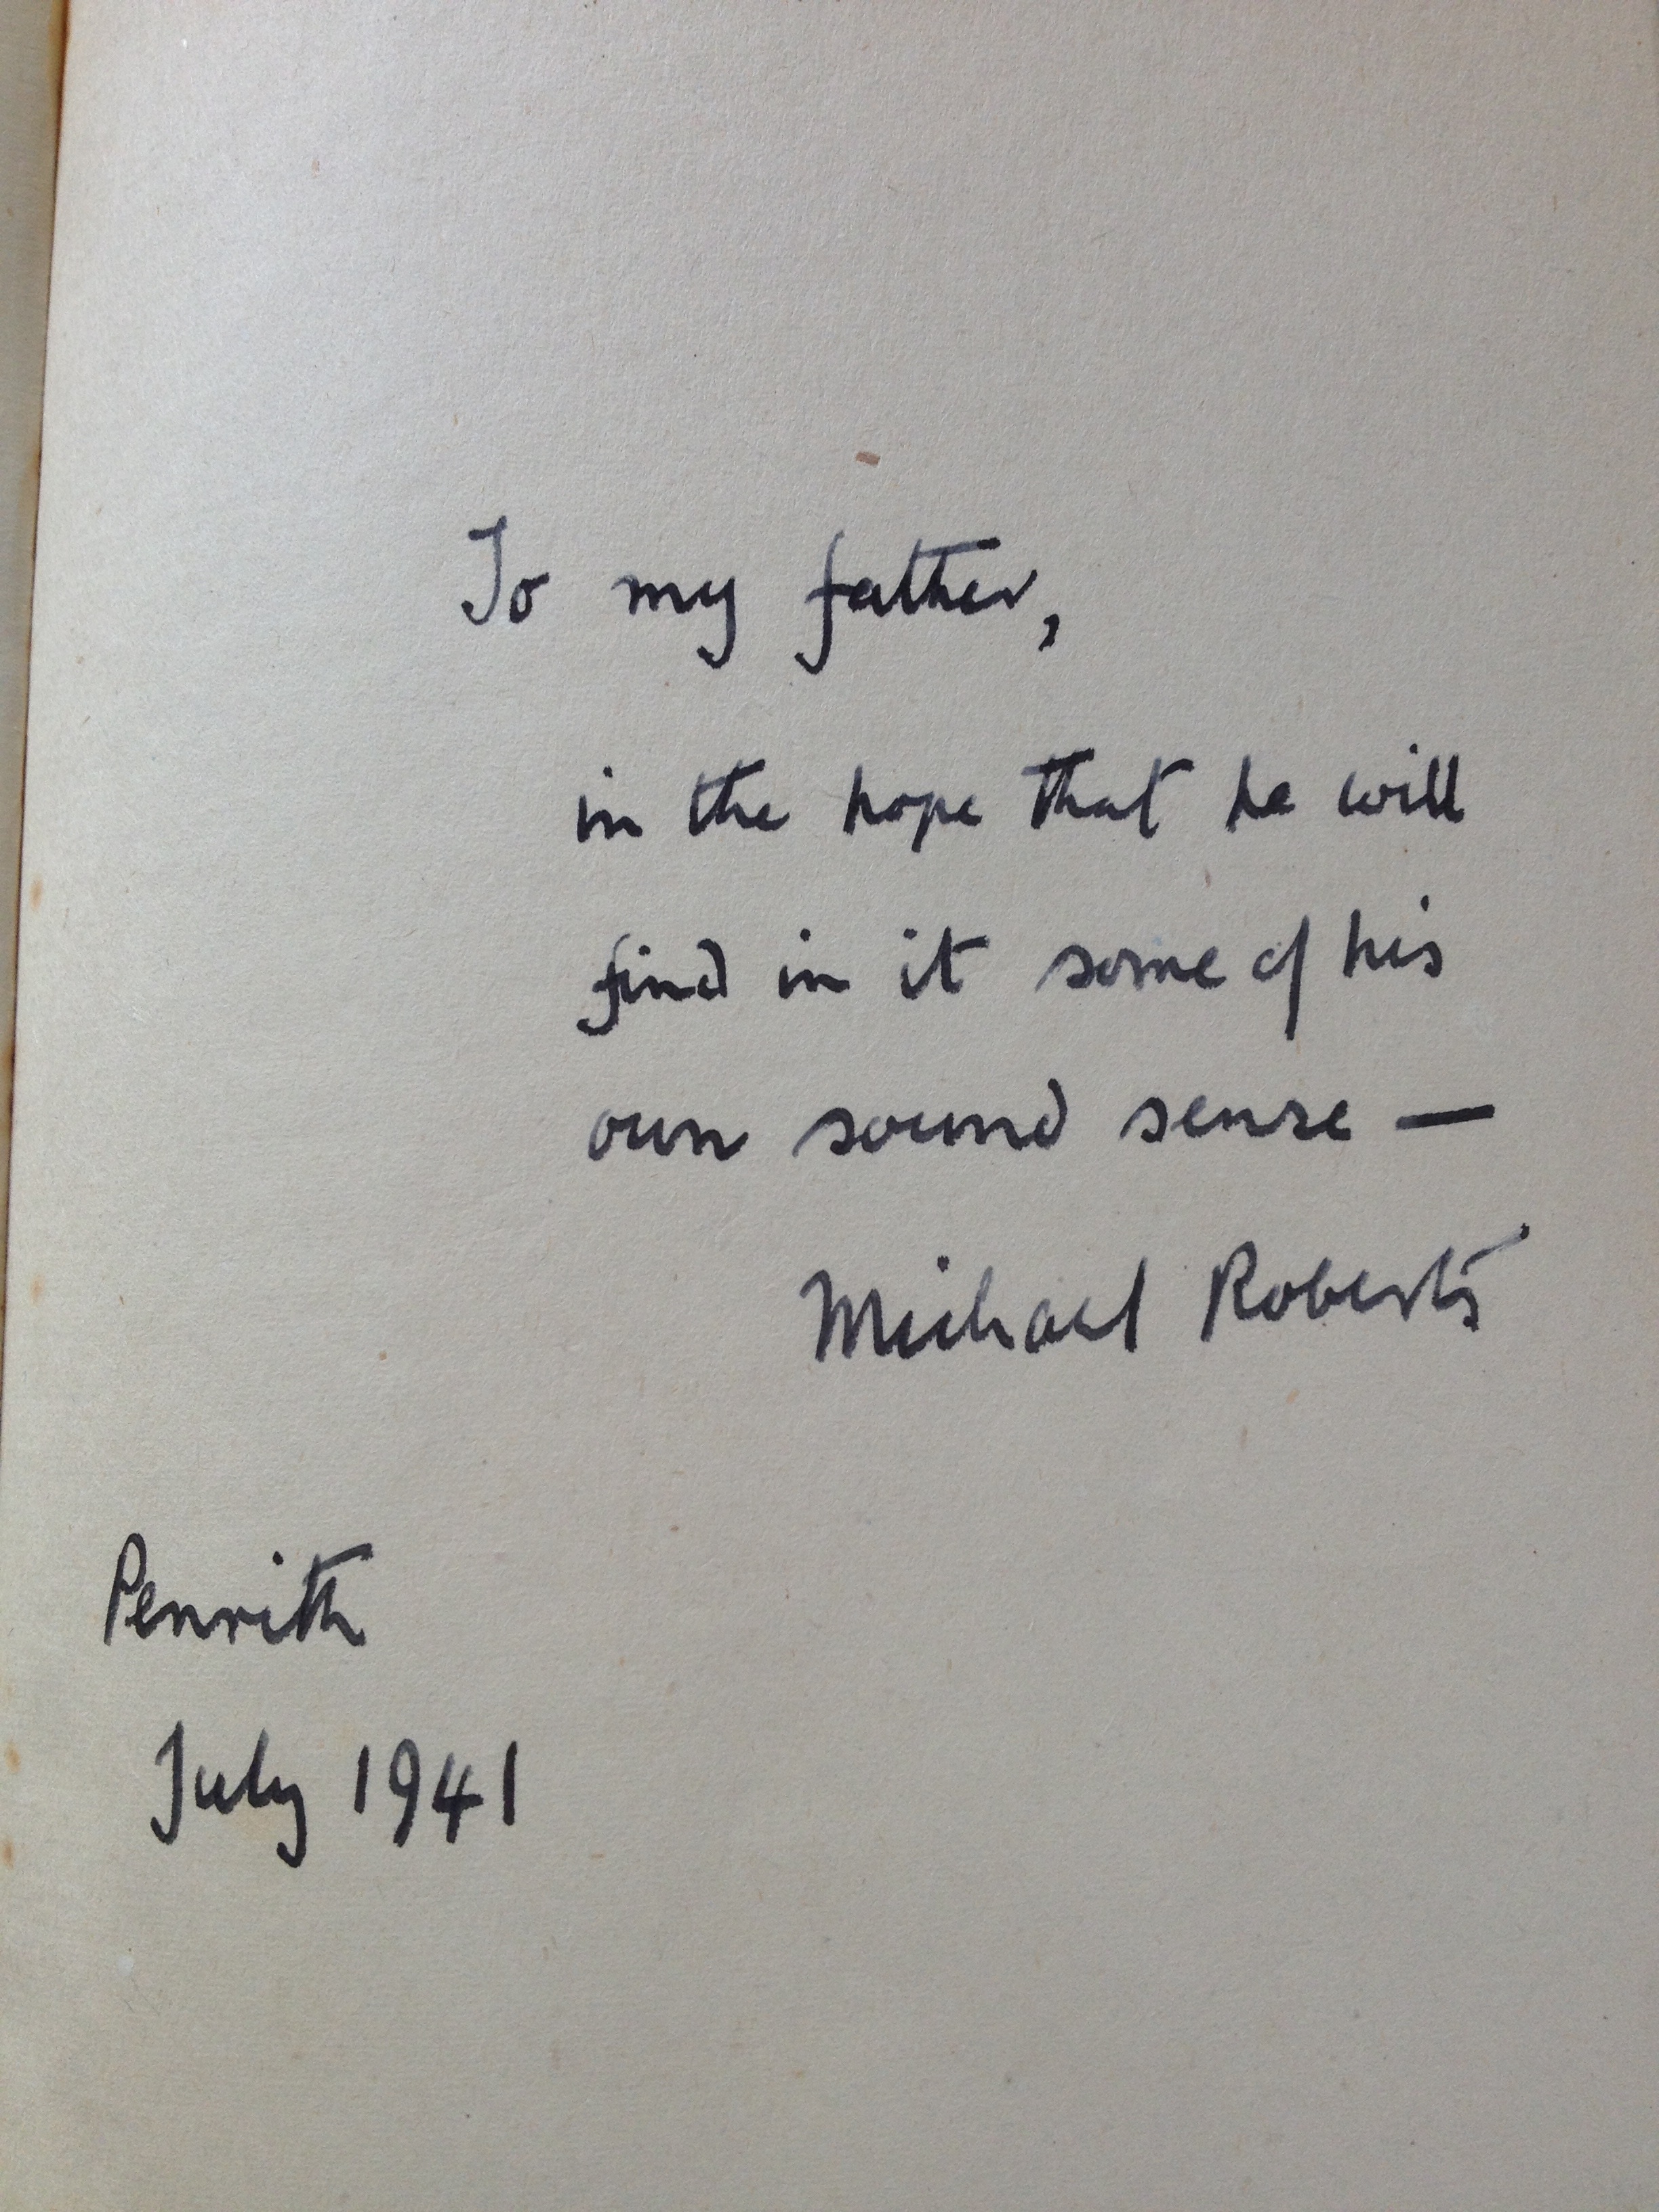 To my father,
in the hope that he will
find in it some of his
own sound sense —
Michael Roberts
Penrith
July 1941